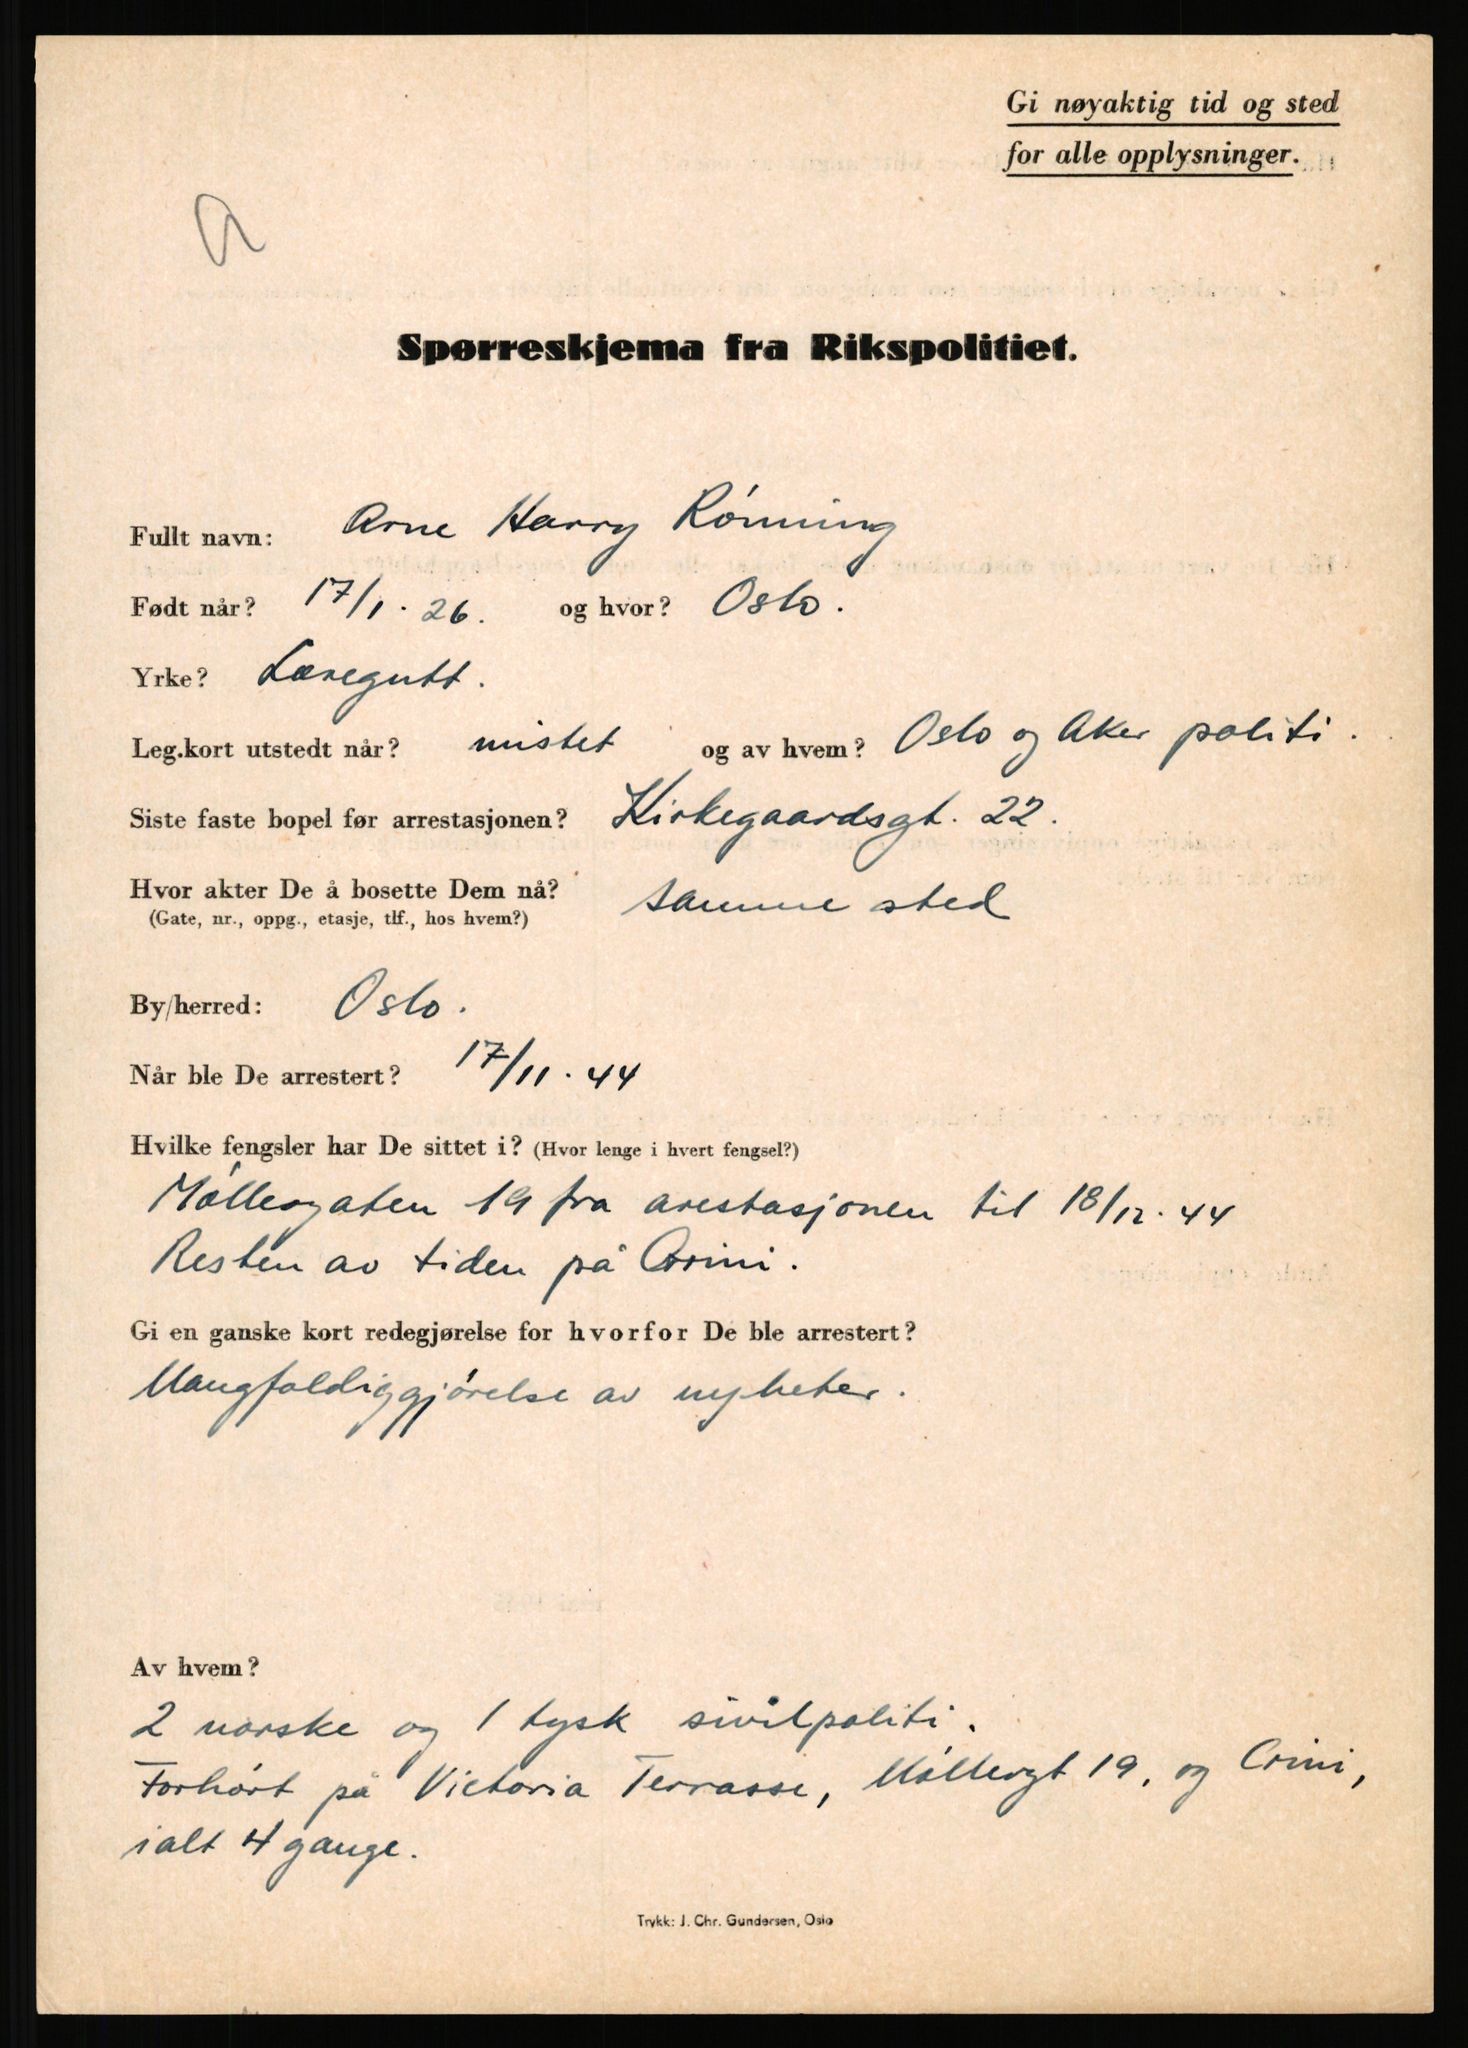 Gi nøyaktig tid og sted
for alle opplysninger.
Spørreskjema fra Rikspolitiet.
Fullt navn: Arne Harry Rónning
Født når? 17/1. 26. og hvor? Oslo.
Yrke? Læregutt.
Leg.kort utstedt når? mistet og av hvem? Oslo og Aker politi.
Siste faste bopel før arrestasjonen? Kirkegaardsgt. 22.
Hvor akter De å bosette Dem nå? samme sted
(Gate, nr., oppg., etasje, tlf., hos hvem?)
By/herred: Oslo.
Når ble De arrestert? 17/11. 44
Hvilke fengsler har De sittet i? (Hvor lenge i hvert fengsel?)
Móllergaten 19 fra arestasjonen til 18/12. 44
Resten av tiden på Grini.
Gi en ganske kort redegjørelse for hvorfor De ble arrestert?
Mangfoldiggjórelse av nyheter.
Av hvem?
2 norske og 1 tysk sivilpoliti.
Forhórt på Victoria Terrasse, Móllergt 19, og Grini,
ialt 4 gange.
Trykk: J. Chr. Gundersen, Oslo